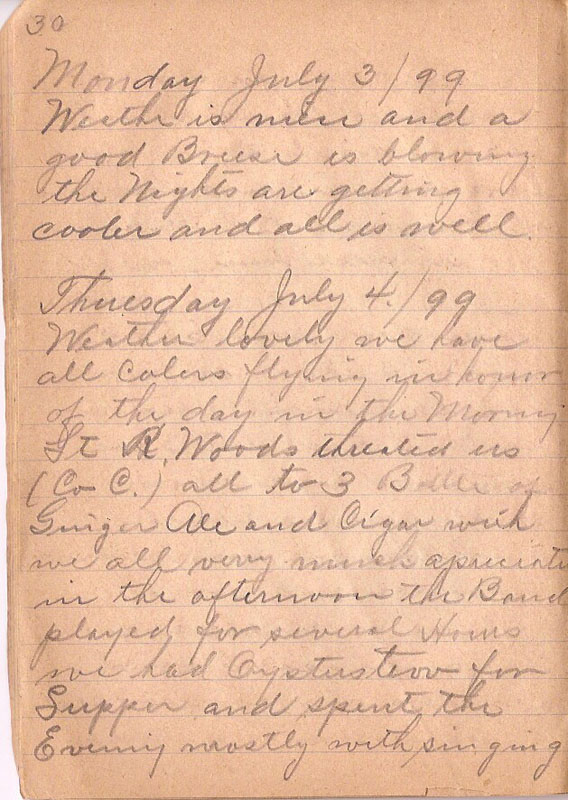 30
Monday July 3/99
Weathr is nice and a
good Breese is blowing
the Nights are getting
cooler and all is well.
Thuesday July 4./99
Weather lovely we have
all Colers flying in honor
of the day in the Morning
Lt R. Woods threated us
(Co C.) all to 3 Bottle of
Ginger Ale and Cigar wich
we all very much apreciate
in the afternoon the Band
played for several Hours
we had Oysterstew for
Supper and spent the
Evening mostly with singing